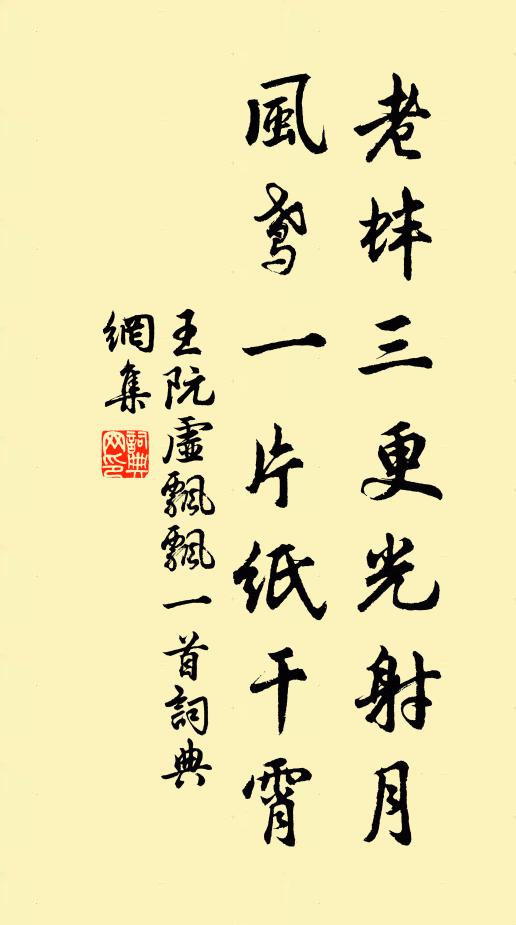 老蚌三更光射月
風鳶一片紙干霄
王阮虛飄飄一首詞典
網集
詞典網印